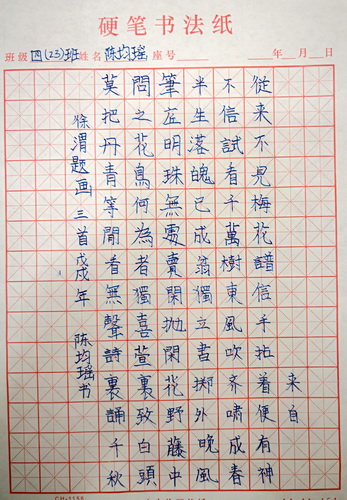 硬笔书法纸
班级 四(23)班 姓名 陈均瑶 座号 年 月 日
来自
從来不見梅花譜信手拈着便有神
不信試看千萬樹東風吹齐嘯成春
半生落魄已成翁獨立書掷外晚風
筆底明珠無處賣閑抛閑花野藤中
問之花鳥何為者獨喜萱裏致白頭
莫把丹青等閒看無聲詩裏誦千秋
徐渭题画三首戊戌年 陈均瑶书